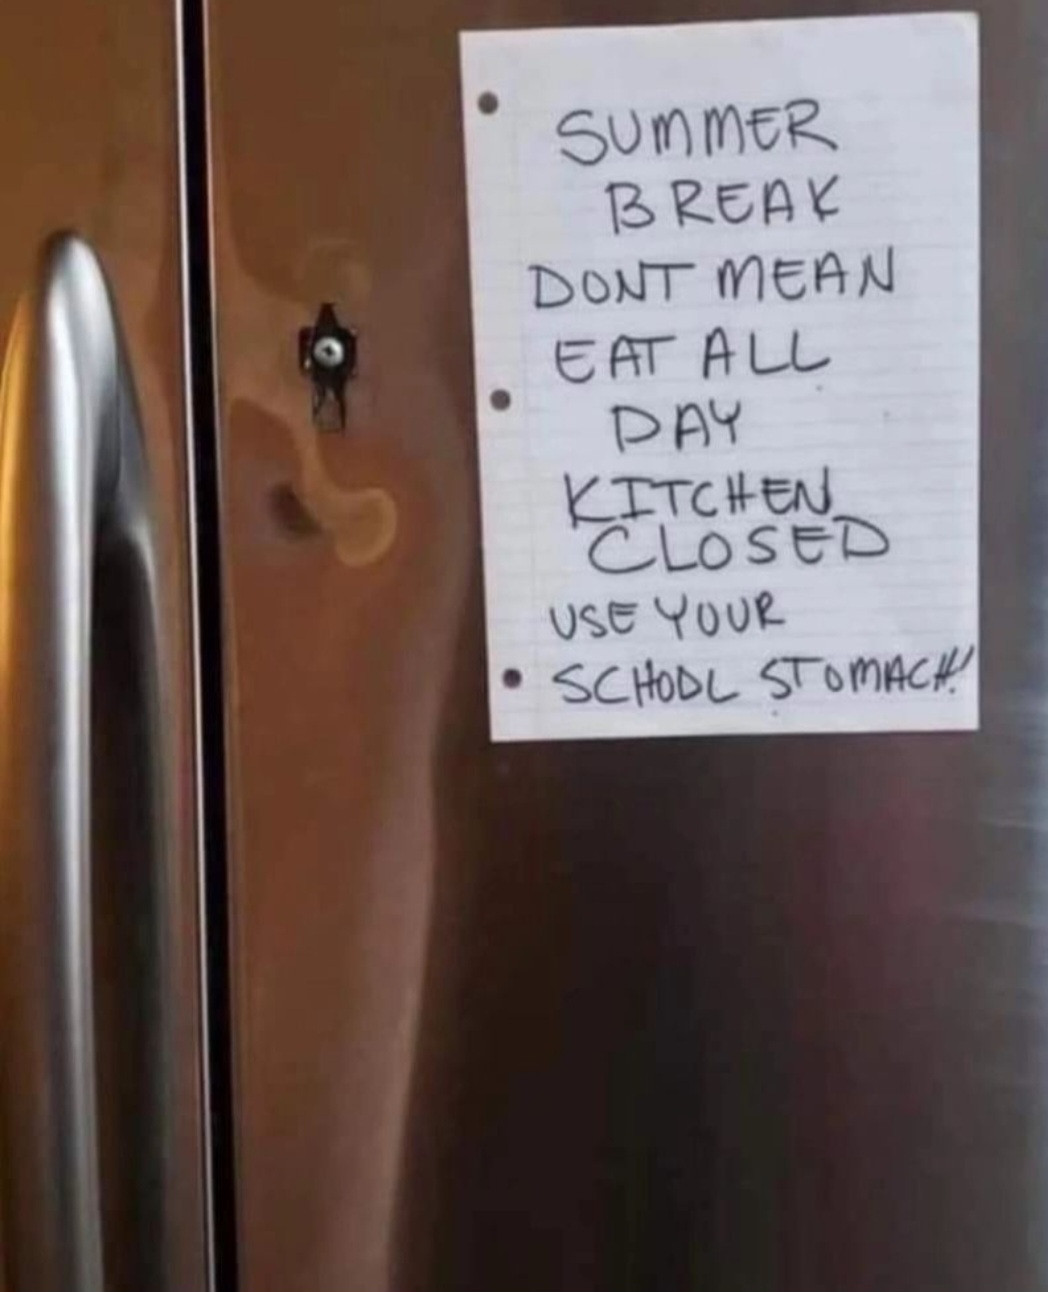 SUMMER
BREAK
DONT MEAN
EAT ALL
DAY
KITCHEN
CLOSED
USE YOUR
SCHOOL STOMACH!